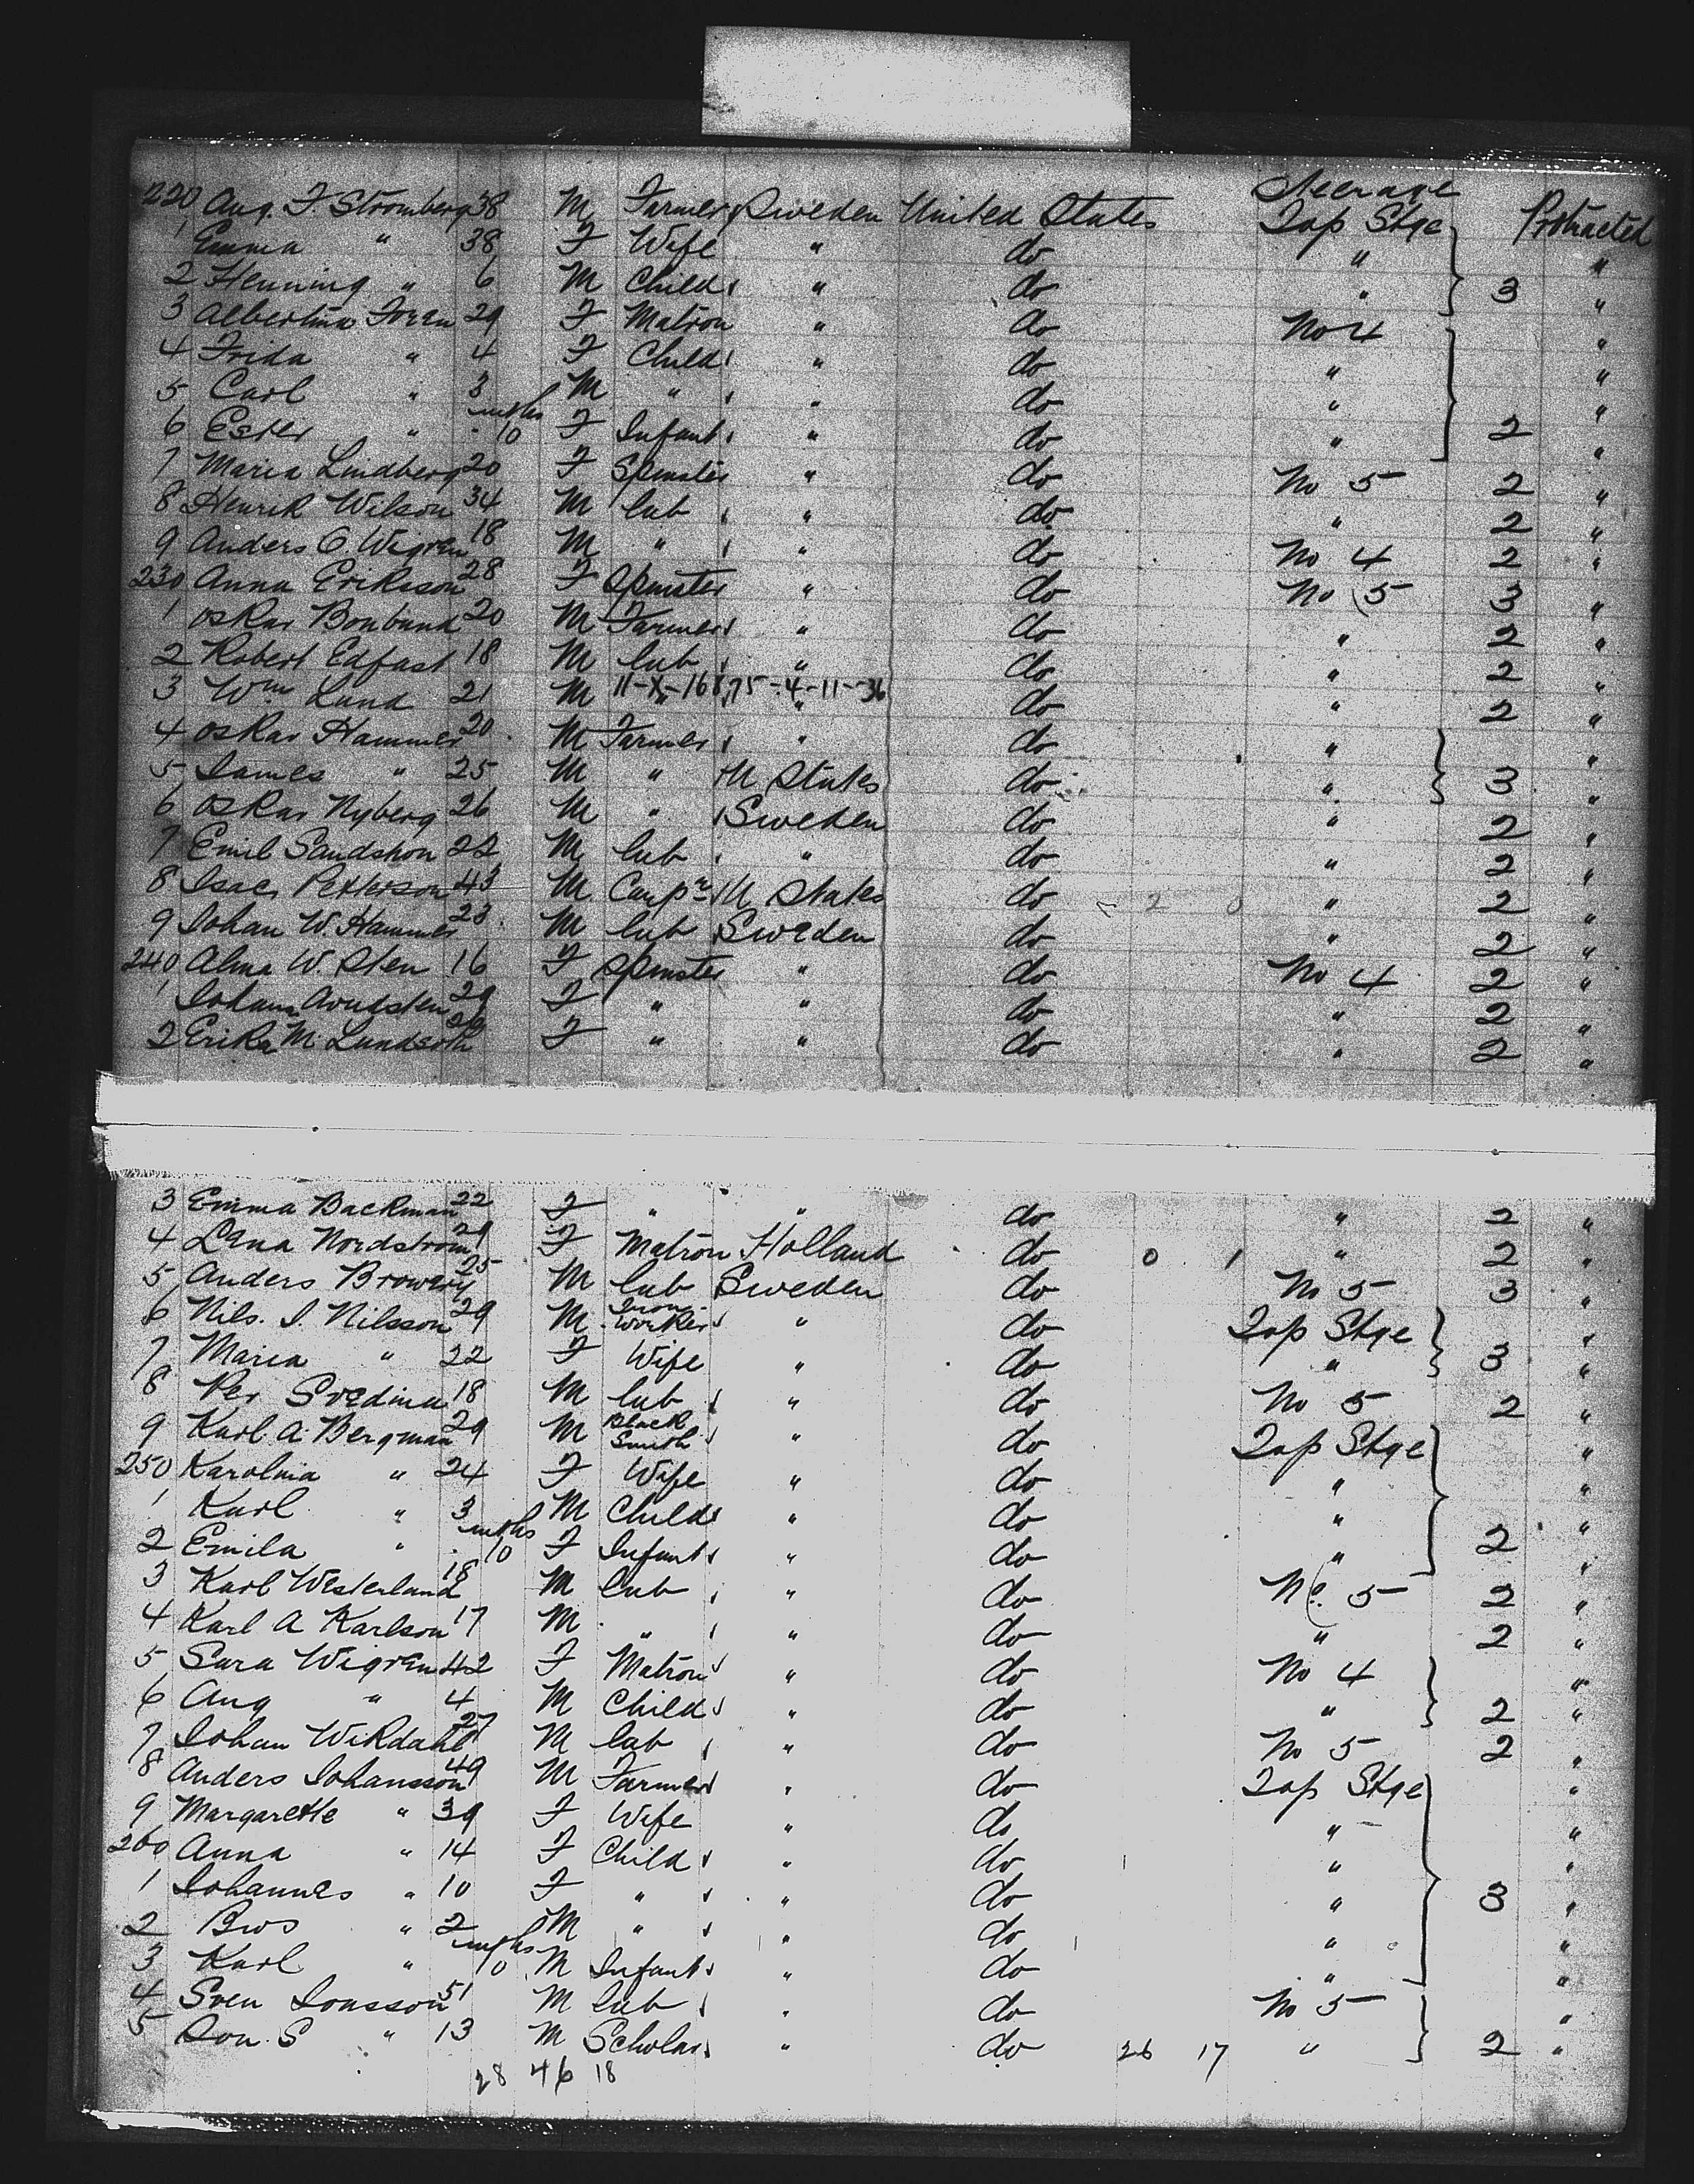 Steerage
220 Aug. F. Stromberg 38 M Farmer Sweden United States Top Stge Protracted
1 Emma " 38 F Wife " do " "
2 Henning " 6 M Child " do " 3 "
3 Albertina Foren 29 F Matron " do No 4 "
4 Frida " 4 F Child " do " "
5 Carl " 3 M " " do " "
6 Ester " mths 10 F Infant " do " 2 "
7 Maria Lindberg 20 F Spinster " do No 5 2 "
8 Henrik Wilson 34 M Lab " do " 2 "
9 Anders O. Wigren 18 M " " do No 4 2 "
230 Anna Eriksson 28 F Spinster " do No 5 3 "
1 Oskar Bonbund 20 M Farmer " do " 2 "
2 Robert Edfast 18 M Lab " do " 2 "
3 Wm Lund 21 M " 11-X-168,75-4-11-36 " do " 2 "
4 Oskar Hammer 20 M Farmer " do " "
5 James " 25 M " U States do " 3 "
6 Oskar Nyberg 26 M " Sweden do " 2 "
7 Emil Sandshon 22 M Lab " do " 2 "
8 Isac Petterson 43 M Carpr U States do 2 0 " 2 "
9 Johan W. Hammer 23 M Lab Sweden do " 2 "
240 Alma W. Sten 16 F Spinster " do No 4 2 "
1 Johanna Arndsten 29 F " " do " 2 "
2 Erika M. Lundsoth F " " do " 2 "
3 Emma Backman 22 F " " do " 2 "
4 Lena Nordstrom 29 F Matron Holland do 0 1 " 2 "
5 Anders Browery 25 M Lab Sweden do No 5 3 "
6 Nils. J. Nilsson 29 M Iron-Worker " do Top Stge "
7 Maria " 22 F Wife " do " 3 "
8 Per Svedina 18 M Lab " do No 5 2 "
9 Karl A. Bergman 29 M Black Smith " do Top Stge "
250 Karolina " 24 F Wife " do " "
1 Karl " 3 M Child " do " "
2 Emila " mths 10 F Infant " do " 2 "
3 Karl Westerland 18 M Lab " do No. 5 2 "
4 Karl A Karlson 17 M " " do " 2 "
5 Sara Wigren 42 F Matron " do No 4 "
6 Aug " 4 M Child " do " 2 "
7 Johan Wikdahl 27 M Lab " do No 5 2 "
8 Anders Johansson 49 M Farmer " do Top Stge "
9 Margarette " 39 F Wife " do " "
260 Anna " 14 F Child " do " "
1 Johannes " 10 F " " do " 3 "
2 Bros " 2 M " " do " "
3 Karl " mths 10 M Infant " do " "
4 Sven Jonsson 51 M Lab " do No 5 "
5 Jon. S " 13 M Scholar " do 26 17 " 2 "
28 46 18